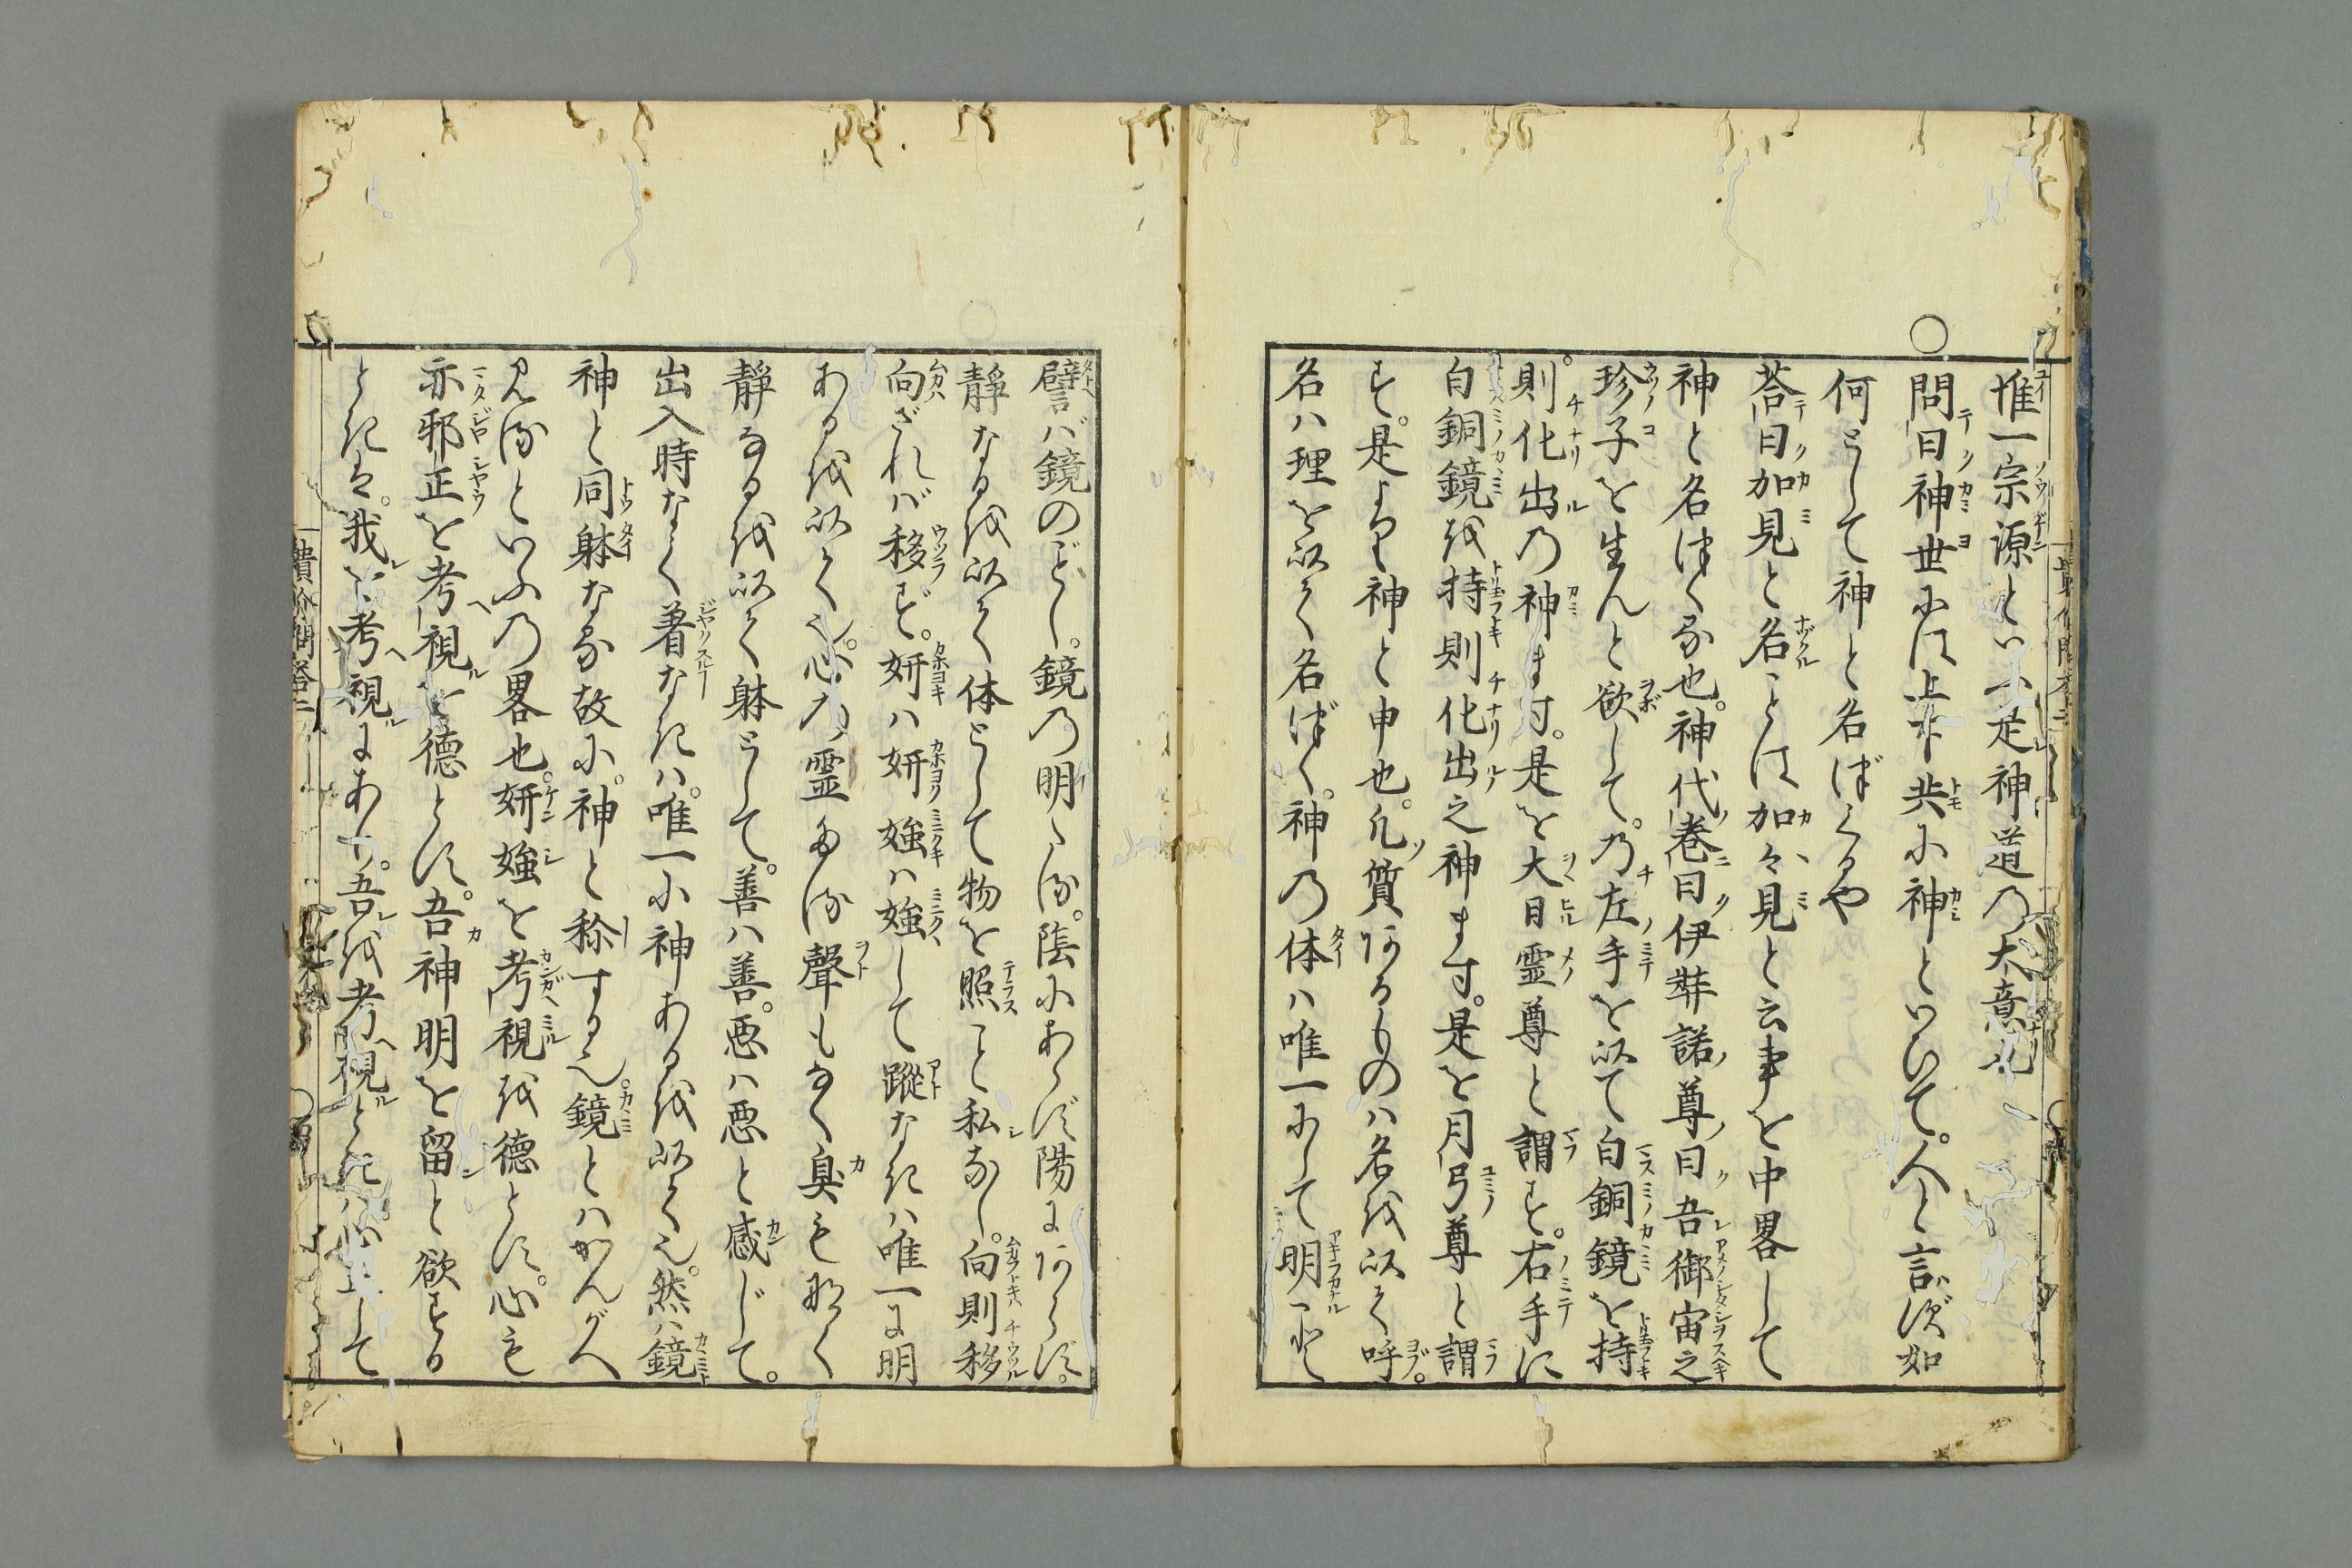 惟一宗源といふ是神道乃大意也
○問曰神世には上下共に神といひて。人と言ず如
何として神と名ばくるや
荅曰加見と名ことは加々見と云事を中畧して
神と名はくる也。神代巻曰伊弉諾尊曰吾御宙之
珍子を生んと欲して。乃左手を以て白銅鏡を持
則化出乃神ます。是を大日霊尊と謂す。右手に
白銅鏡を持則化出之神ます。是を月弓尊と謂
す。是より神と申也。凡質あるものハ名を以て呼。
名ハ理を以て名ばく。神乃体ハ唯一にして明にして
譬バ鏡のごとし。鏡乃明なる。陰にあらず陽にあらず。
静なるを以て体として物を照こと私なし。向則移
向ざれバ移ず。妍ハ妍媸ハ媸して蹤なきハ唯一に明
あるを以て也。心乃霊なる聲もなく臭も形なく
静なるを以て躰として。善ハ善。悪ハ悪と感じて。
出入時なく着なきハ。唯一に神あるを以て也。然ハ鏡
神と同躰なる故に。神と称する也。鏡とハかんがへ
見るといふ乃畧也。妍媸を考視を徳とす。心も
亦邪正を考視を徳とす。吾神明を留と欲する
ときは。我を考視にあり。吾を考視ときハ心正して